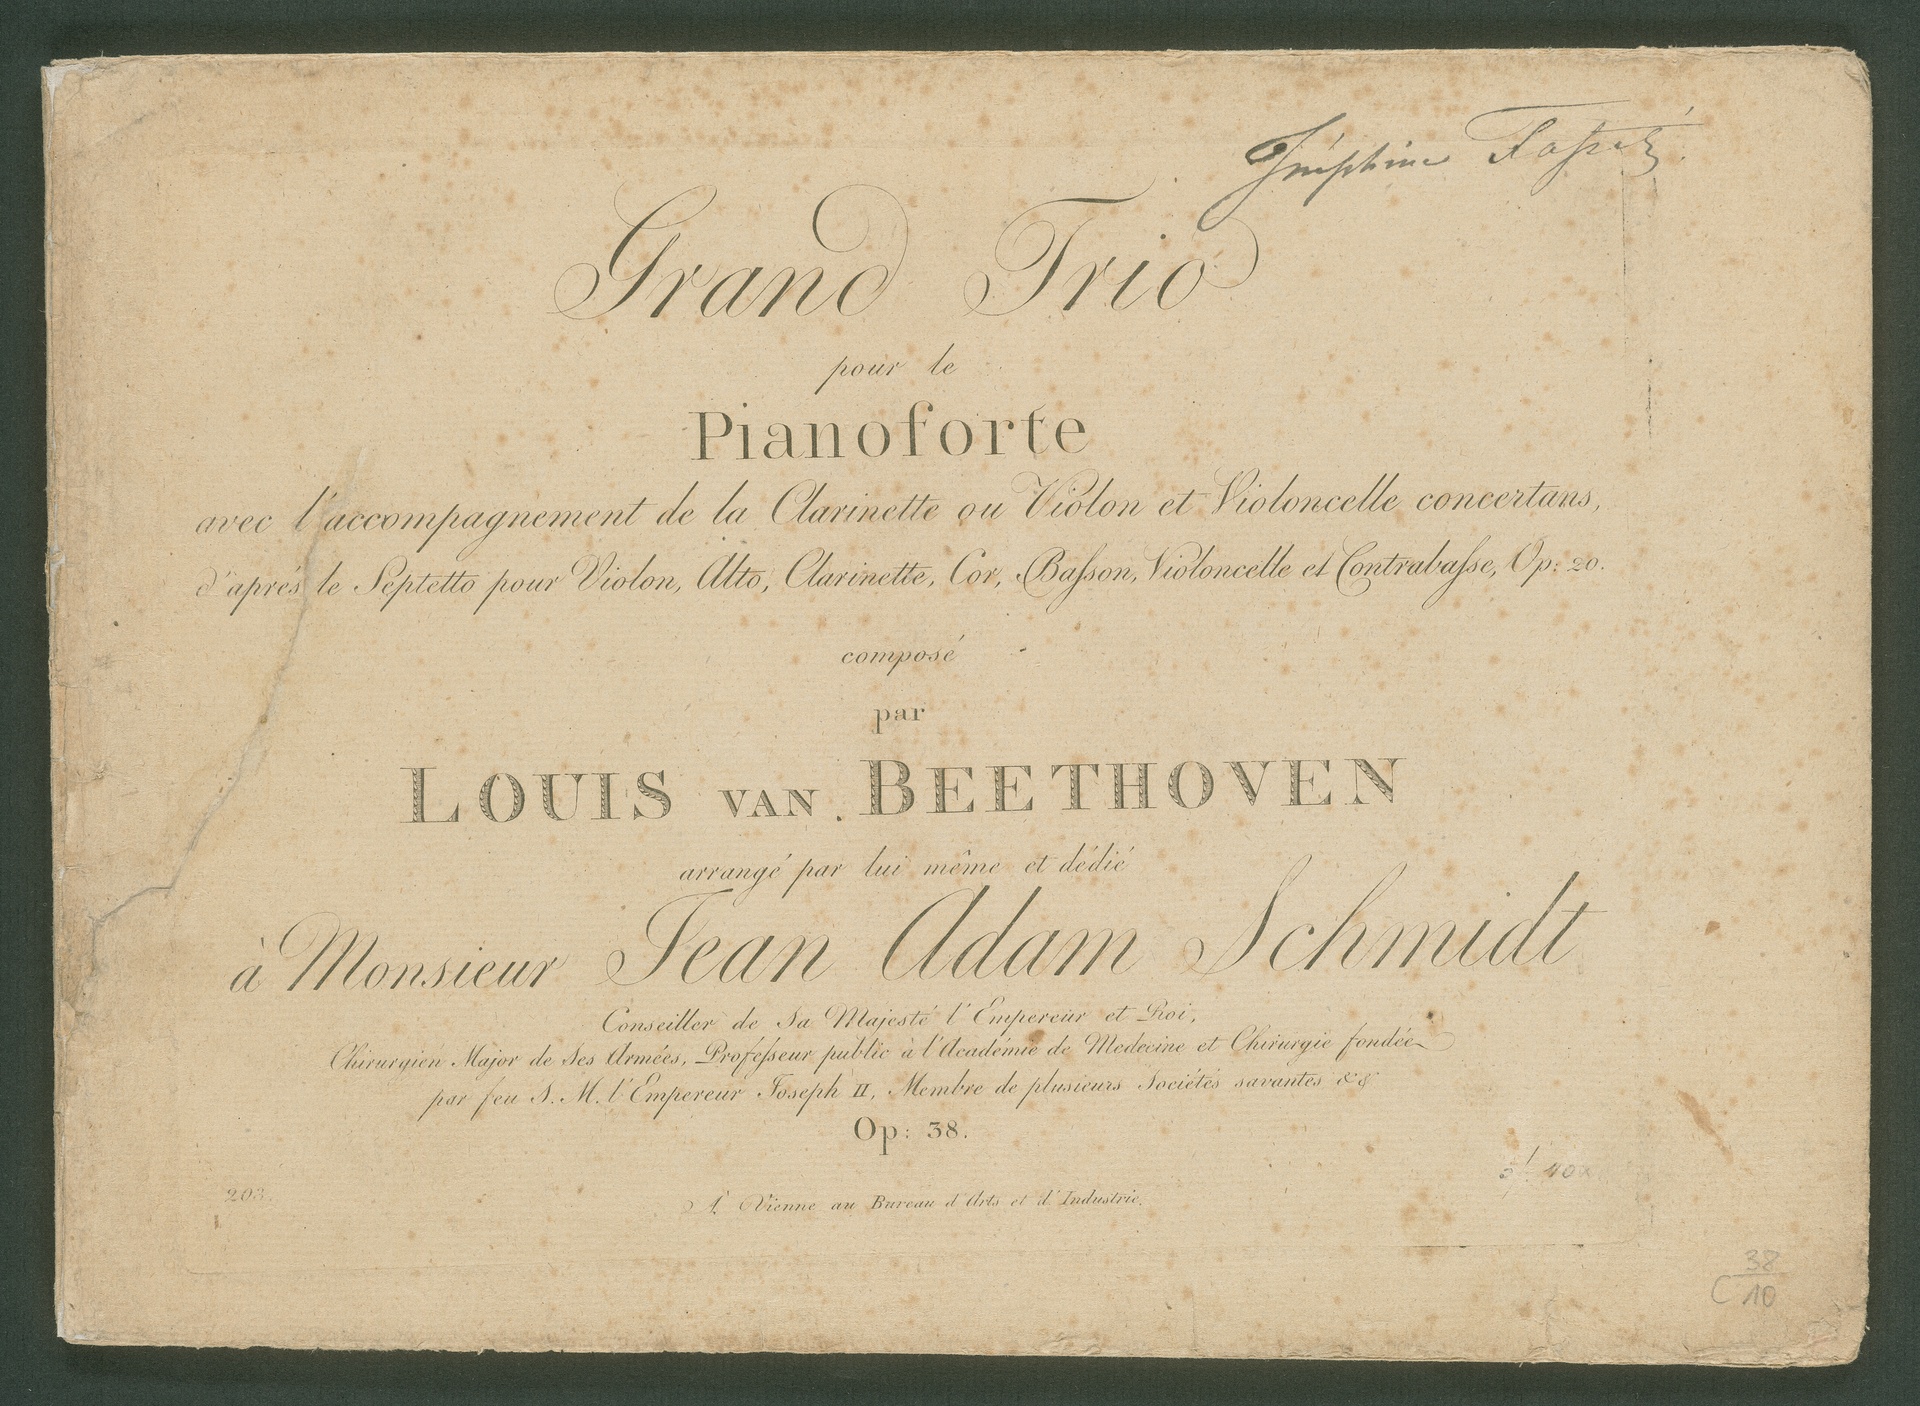 Joséphine
Grand Trio
pour le
Pianoforte
avec l'accompagnement de la Clarinette ou Violon et Violoncelle concertans,
d'aprés le Septetto pour Violon, Alto, Clarinette, Cor, Baſson, Violoncelle et Contrabaſse, Op: 20.
composé
par
LOUIS VAN BEETHOVEN
arrangé par lui même et dédié
à Monsieur Jean Adam Schmidt
Conseiller de Sa Majesté l'Empereur et Roi,
Chirurgien Major de Ses Armées, Profeſseur public à l'Académie de Medecine et Chirurgie fondée
par feu S. M. l'Empereur Joseph II, Membre de plusieurs Sociétés savantes &&
Op: 38.
203.
40
A Vienne au Bureau d'Arts et d'Industrie.
38
C 10